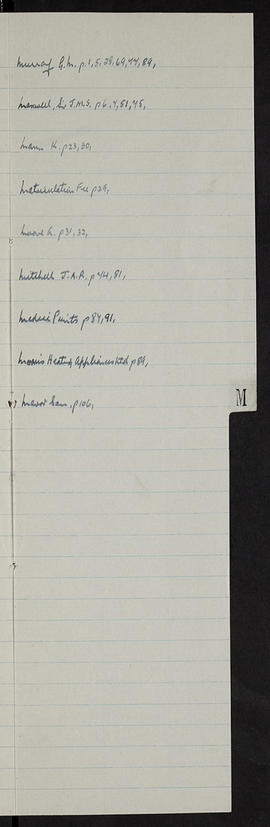 Murray G.M. p.1,5,28,69,74,89,
Maxwell, Sir J.M.S. p6,7,51,75,
Mann K. p23,30,
Matriculation Fee p29,
Moore A. p31,32,
Mitchell J.A.R. p44,81,
Medici Prints p87,91,
Morris Heating Appliances Ltd p89,
Mavor Sam. p106,
M